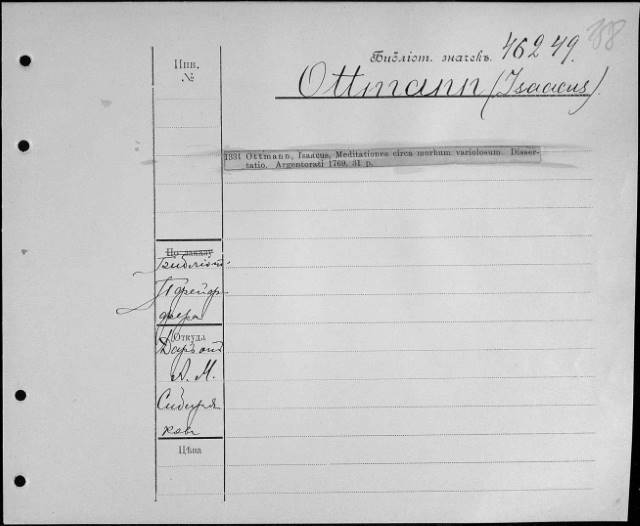 Инв.
№
Библіот. значекъ. 46249.
Ottmann (Isaacus).
1334 Ottmann, Isaacus, Meditationes circa morbum variolosum. Disser-
tatio. Argentorati 1769. 31 p.
По заказу
Библіот.
Откуда
Даръ отъ
А. М.
Сибиря-
кова
Цѣна